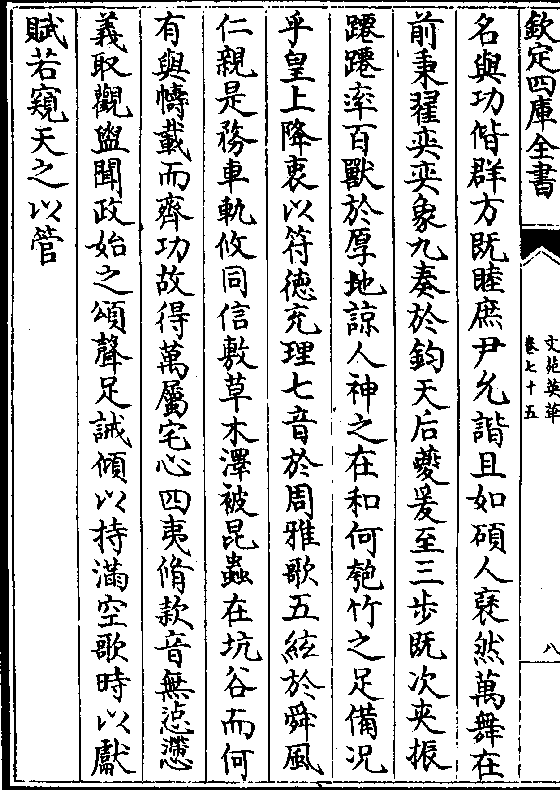 欽定四庫全書
文苑英華
卷七十五
八
名與功偕群方既睦庶尹允諧且如碩人褎然萬舞在
前秉翟奕奕象九奏於鈞天后夔爰至三步既次夾振
蹮蹮率百獸於厚地諒人神之在和何匏竹之足備况
乎皇上降衷以符德充理七音於周雅歌五絃於舜風
仁親是務車軌攸同信敷草木澤被昆蟲在坑谷而何
有與幬載而齊功故得萬屬宅心四夷脩款音無惉懘
義取觀盥聞政始之頌聲足誡傾以持滿空歌時以獻
賦若窺天之以管